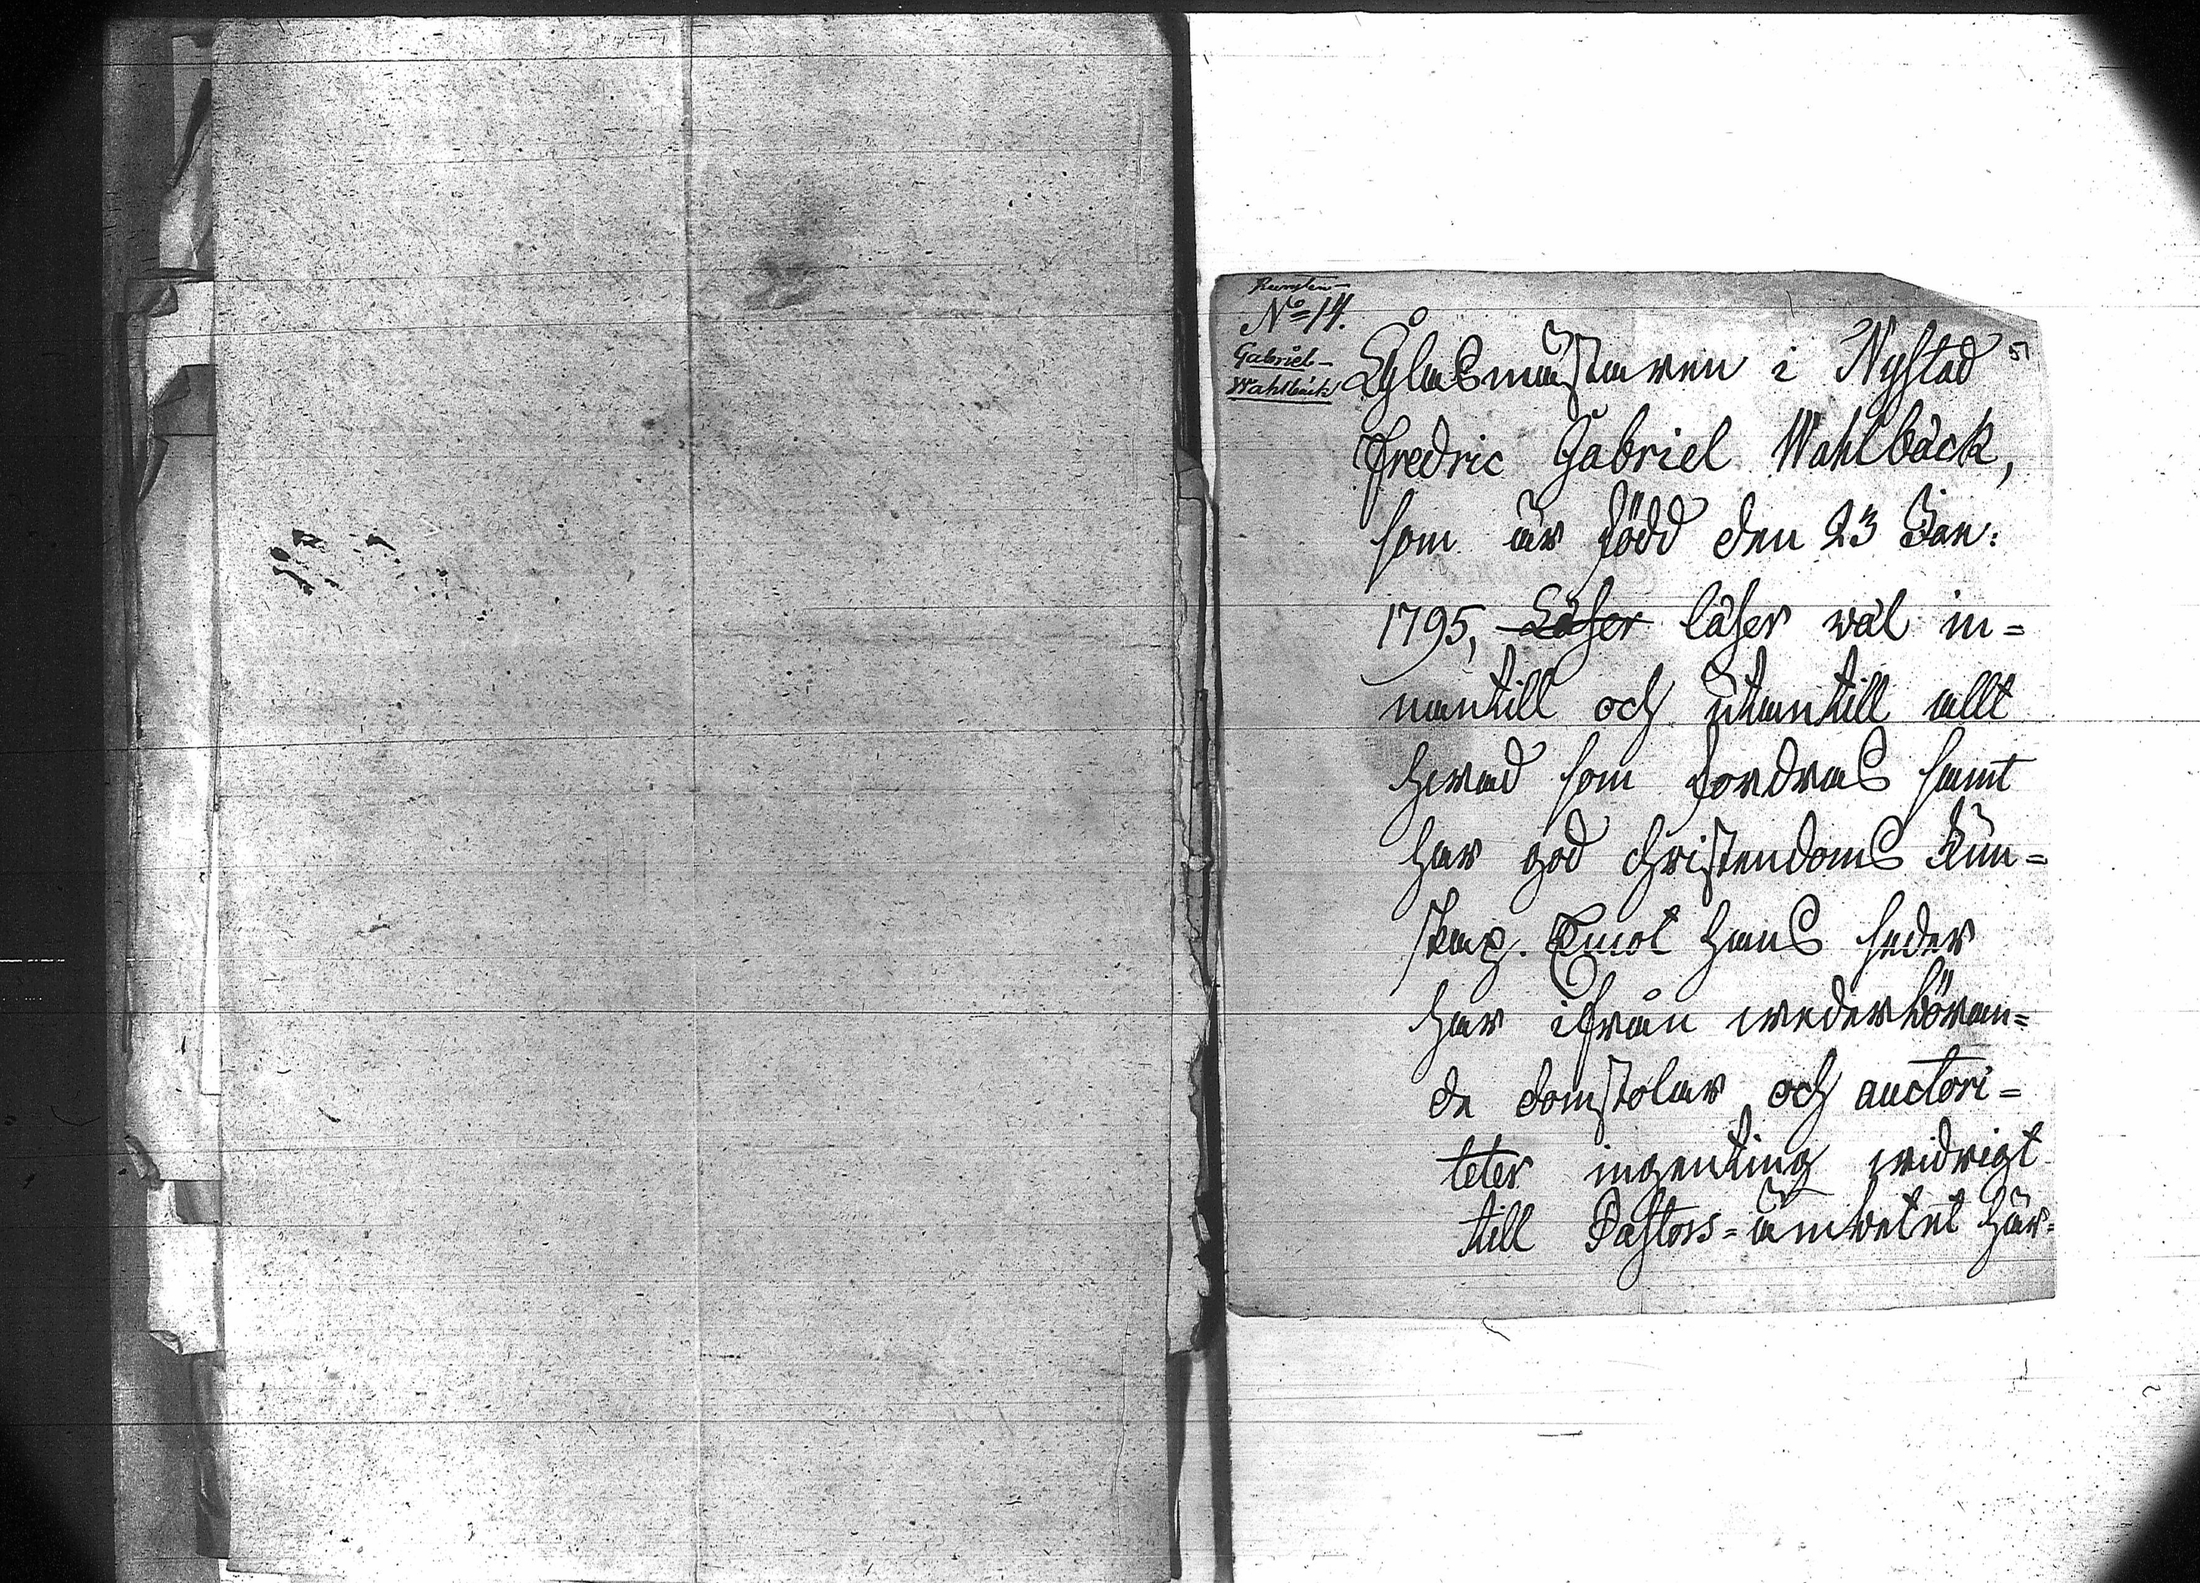 No 14.
Gabriel
Wahlbäck
51
Glasmästaren i Nystad
Fredric Gabriel Wahlbäck,
som är född den 23 Jan:
1795, Läser läser wäl in=
nantill och utantill allt
hwad som fordras samt
har god christendoms kun=
skap. Emot hans seder
har ifrån wederböran=
de domstolar och auctori=
teter ingenting widrigt
till Pastors=ämbetet här=